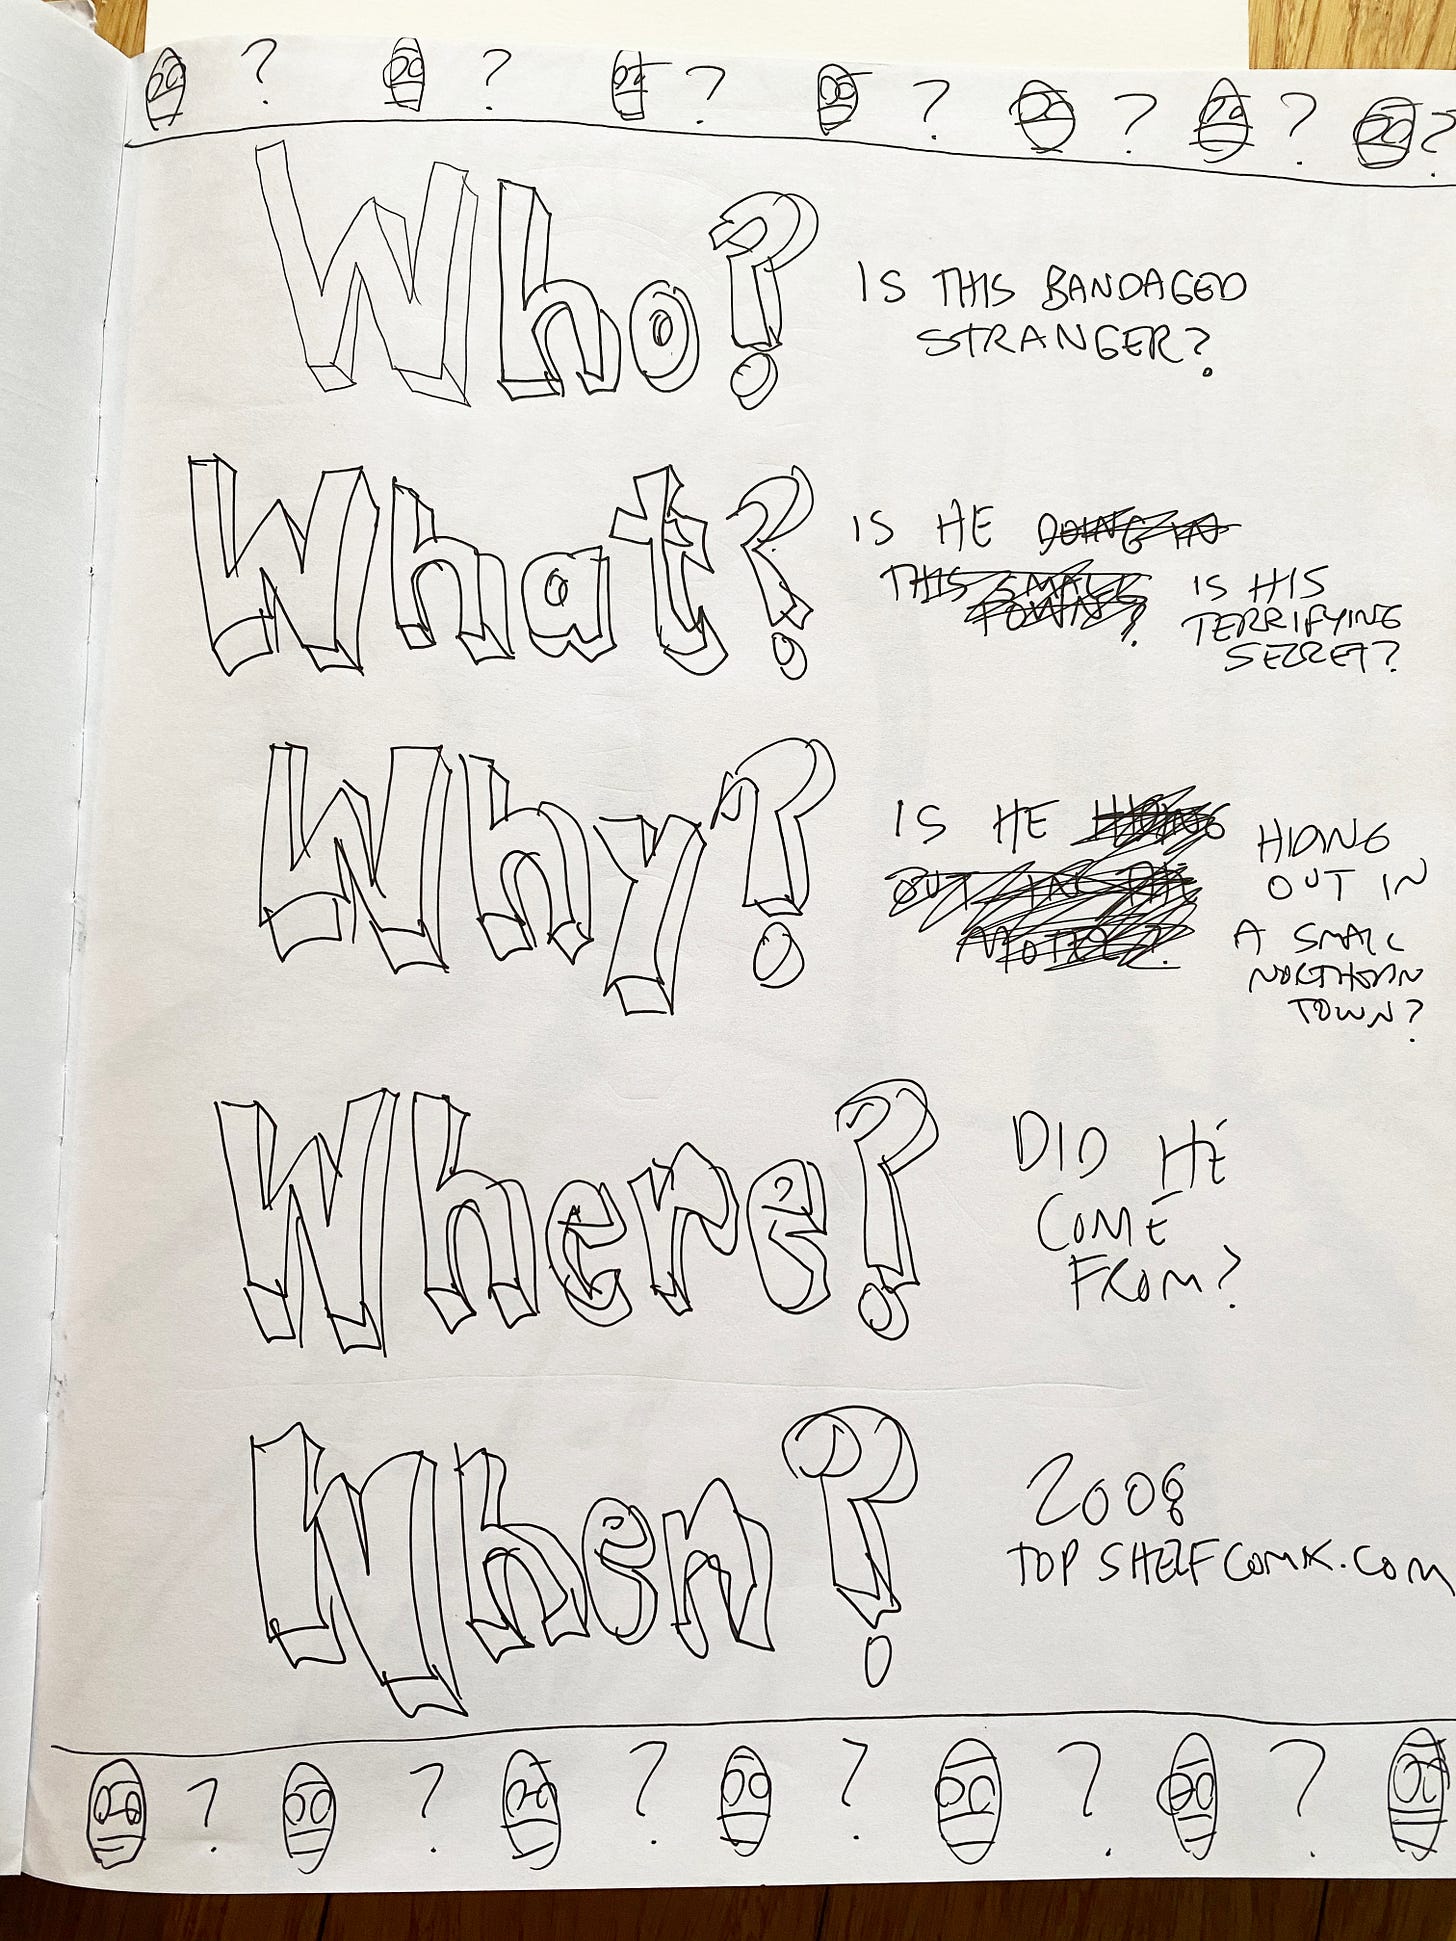 ? ? ? ? ? ? ?
Who? IS THIS BANDAGED
STRANGER?
What? IS HE DOING IN
THIS SMALL
TOWN? IS HIS
TERRIFYING
SECRET?
Why? IS HE HIDING
OUT IN
HIDING
OUT IN
A SMALL
NORTHERN
TOWN?
Where? DID HE
COME
FROM?
When? 2008
TOPSHELFCOMIX.COM
? ? ? ? ? ?